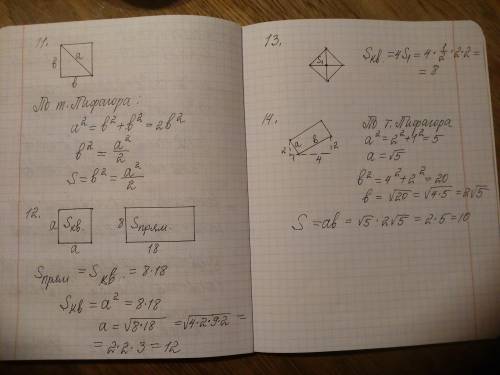 11.
a
b
b
По т. Пифагора:
a² = b² + b² = 2b²
b² = a²/2
S = b² = a²/2
12.
a Sкв. 8 Sпрям.
a 18
Sпрям = Sкв = 8·18
Sкв = a² = 8·18
a = √8·18 = √4·2·9·2 =
= 2·2·3 = 12
13.
S₁
Sкв. = 4S₁ = 4·1/2·2·2 =
= 8
14.
a b
2 2
1 4
По т. Пифагора
a² = 2² + 1² = 5
a = √5
b² = 4² + 2² = 20
b = √20 = √4·5 = 2√5
S = ab = √5 · 2√5 = 2·5 = 10